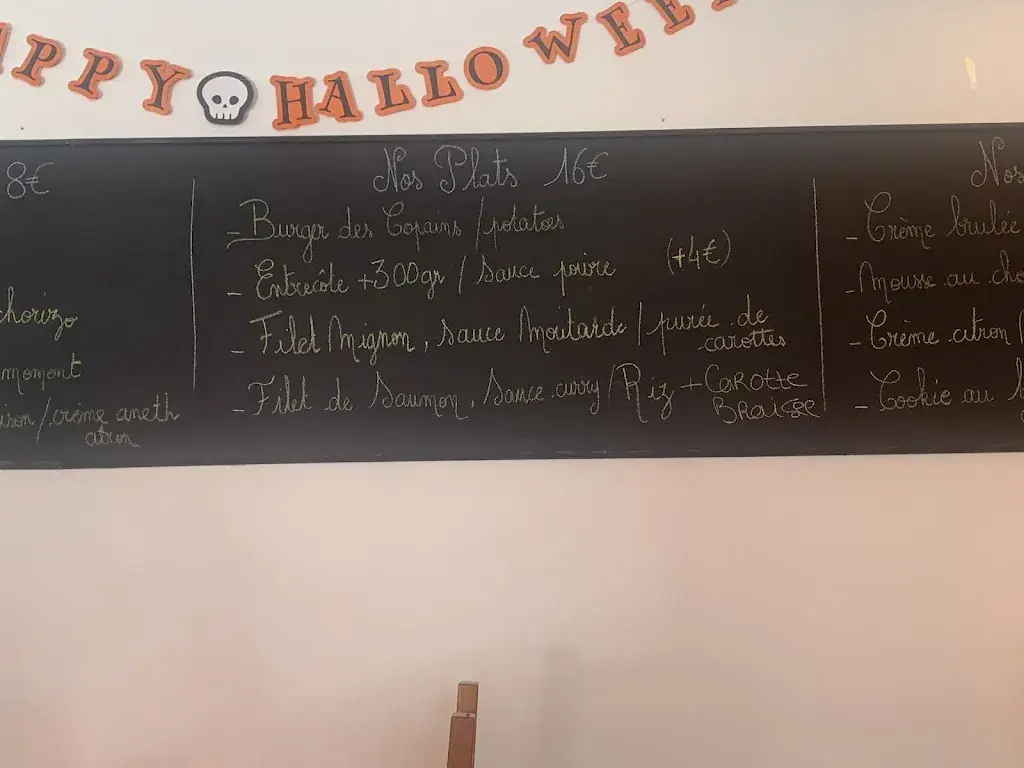 APPY HALLOWEE
8€
chorizo
moment
/crème aneth
citron
Nos Plats 16€
- Burger des Copains / potatoes
- Entrecôte +300gr / sauce poivre (+4€)
- Filet Mignon, sauce Moutarde / purée de
carottes
- Filet de Saumon, Sauce curry / Riz + CAROTTE
BRAISÉE
Nos
- Crème brulée
- Mousse au cho
- Crème citron
- Cookie au